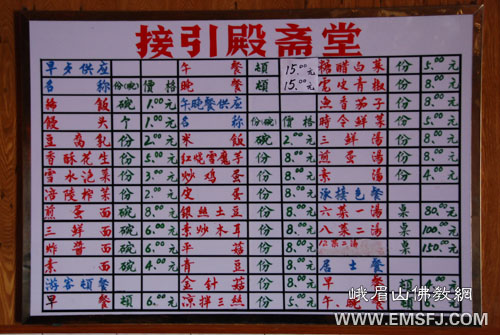 接引殿斋堂
早夕供应
名称 份(碗) 價格
稀飯 碗 1.00元
馒头 个 1.00元
豆腐乳 份 2.00元
香酥花生 份 5.00元
雪水泡菜 份 3.00元
涪陵榨菜 份 2.00元
煎蛋面 碗 8.00元
三鲜面 碗 6.00元
炸醬面 碗 6.00元
素面 碗 4.00元
游客頓餐
早餐 頓 6.00元
午餐 頓 15.00元
晚餐 頓 15.00元
午晚餐供应
名称 份(碗) 價格
米飯 碗 2.00元
红烧雪魔芋 份 8.00元
炒鸡蛋 份 8.00元
皮蛋 份 8.00元
銀絲土豆 份 8.00元
素炒木耳 份 8.00元
平菇 份 8.00元
青豆 份 8.00元
金针菇 份 8.00元
凉拌三丝 份 5.00元
糖醋白菜 份 5.00元
虎皮青椒 份 8.00元
鱼香茄子 份 8.00元
時令鲜菜 份 5.00元
三鲜湯 份 8.00元
煎蛋湯 份 8.00元
素湯 份 4.00元
承接包餐
六菜一湯 桌 80.00元
八菜二湯 桌 100.00元
12菜二湯 桌 150.00元
居士餐
早餐
午晚餐
峨眉山佛教網
www.EMSFJ.COM